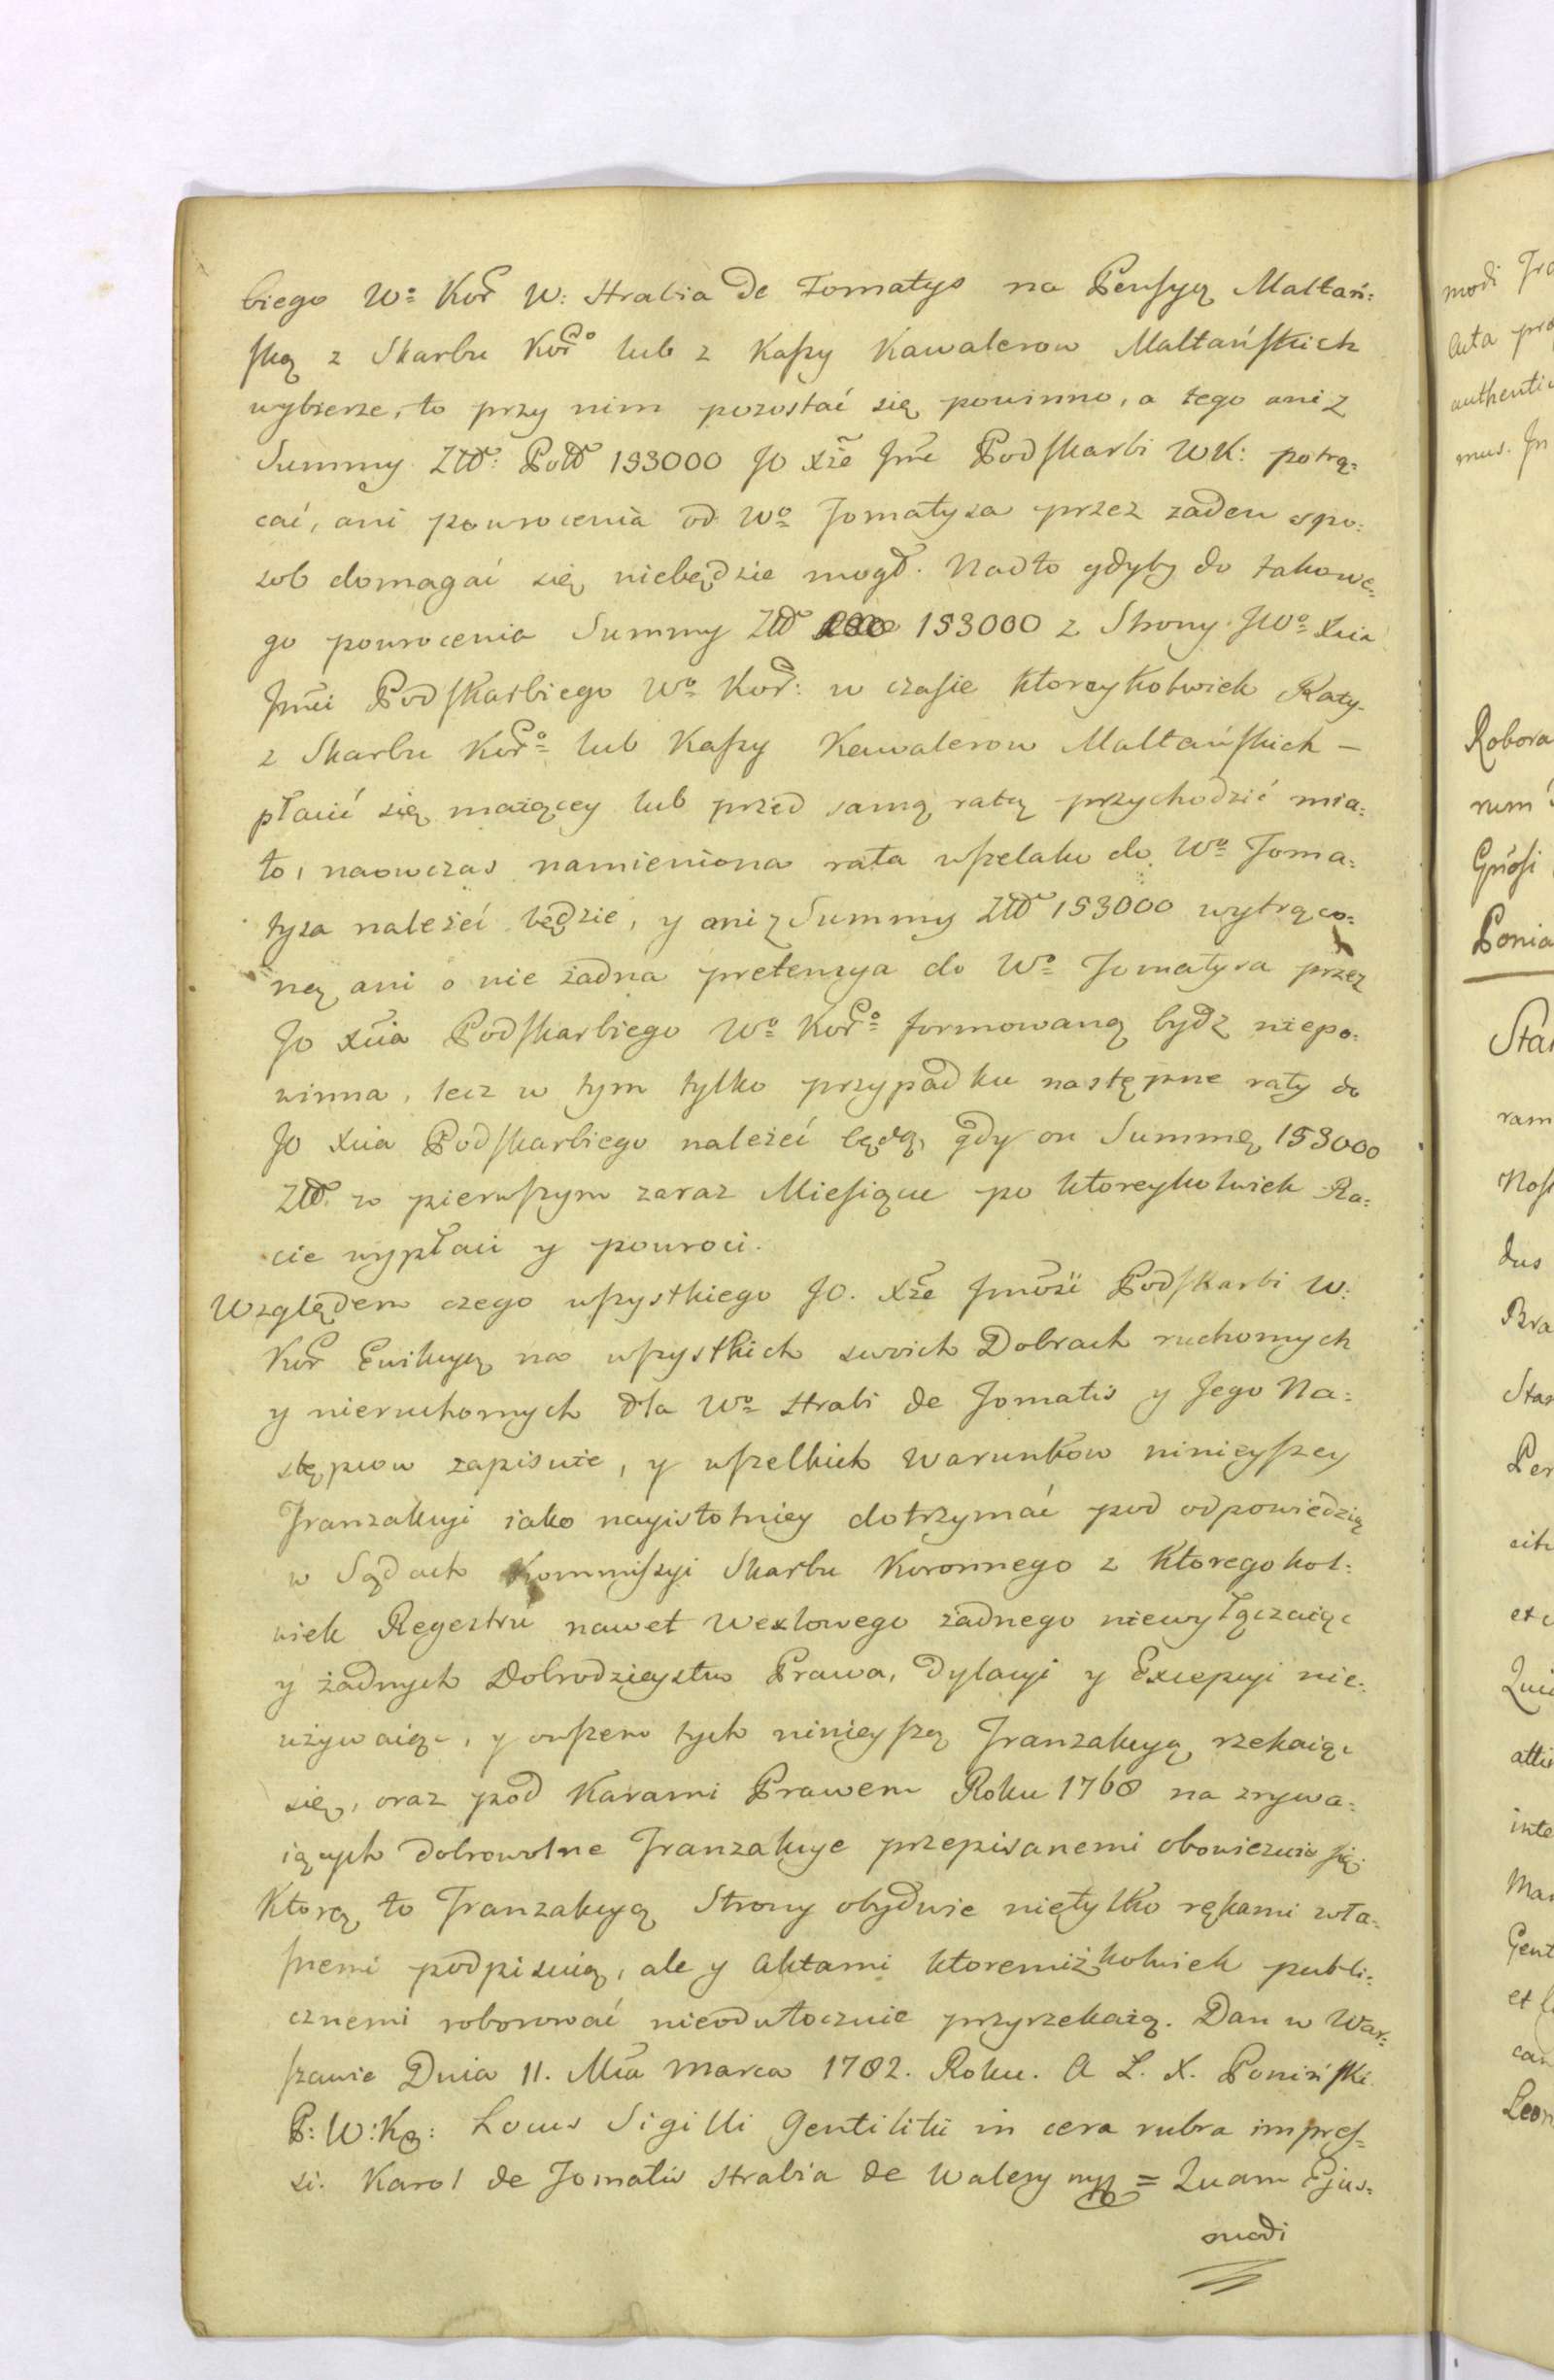 biego Wº Kor̃ W: Hrabia de Tomatys na Pensyą Maltań:
ską z Skarbu Korº lub z Kaſsy Kawalerow Maltańſkich
wybierze, to przy nim pozostać się powinno, a tego ani z
Summy Złł: Polł 153000 JO Xże Jmć Podſkarbi WK: potrą:
cać, ani powrocenia od Wº Tomatysa przez zaden spo:
sob domagać się niebędzie mogł. Nadto gdyby do takowe:
go powrocenia Summy Złł 153000 z Strony JWº Xcia
Jmći Podſkarbiego Wº Kor: w czasie ktoreykolwiek Raty
z Skarbu Korº lub Kaſsy Kawalerow Maltańſkich —
płacić się maiącey lub przed samą ratą przychodzić mia:
ło, naowczas namieniona rata wſzelako do Wº Toma:
tysa należeć będzie, y ani z Summy Złł 153000 wytrąco:
ną ani o nie żadna pretensya do Wº Tomatysa przez
JO Xcia Podſkarbiego Wº Korº formowaną bydź niepo:
winna, lecz w tym tylko przypadku następne raty do
JO Xcia Podſkarbiego należeć będą, gdy on Summę 153000
Złł w pierwſzym zaraz Mieſiącu po ktoreykolwiek Ra:
cie wypłaci y powroci.
Względem czego wſzystkiego JO. Xże Jmość Podſkarbi W:
Kor Ewikcyą na wſzystkich swoich Dobrach ruchomych
y nieruchomych dla Wº Hrabi de Tomatis y Jego Na:
stępcow zapisuie, y wſzelkich warunkow ninieyſzey
Tranzakcyi iako nayistotniey dotrzymać pod odpowiedzią
w Sądach Kommiſsyi Skarbu Koronnego z Ktoregokol:
wiek Regestru nawet Wexlowego żadnego niewyłączaiąc
y żadnych Dobrodzieystw Prawa, Dylacyi y Excepcyi nie:
używaiąc, y owſzem tych ninieyſzą Tranzakcyą rzekaiąc
się, oraz pod Karami Prawem Roku 1768 na zrywa:
iących dobrowolne Tranzakcye przepisanemi obowiezuie ſię
Ktorą to Tranzakcyą Strony obydwie nietylko rękami wła:
ſnemi podpisuią, ale y Aktami ktoremiżkolwiek publi:
cznemi roborować nieodwłocznie przyrzekaią. Dan w War:
ſzawie Dnia 11. Mca Marca 1782. Roku. A L. X. Poniński
P: W: K: Locus Sigilli Gentilitii in cera rubra impreſ:
si. Karol de Tomatis Hrabia de Walery mp = Quam Ejus:
modi
modi
Acta
authenti
mus. Jn
Robora
rum
Gnoſi
Ponia
ram
Noſ
dus
Bra
Star
Per
et
inte
Mar
Gent
et
Leon